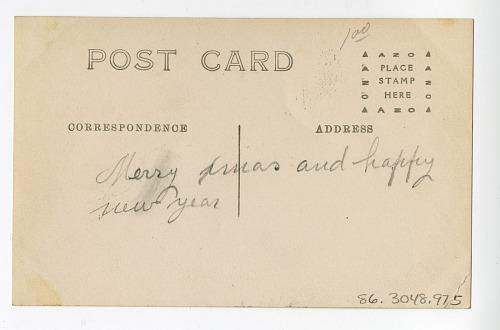 1.00
POST CARD
AZO
PLACE
STAMP
HERE
AZO
AZO
AZO
CORRESPONDENCE
ADDRESS
Merry xmas and happy
new year
86.3048.975